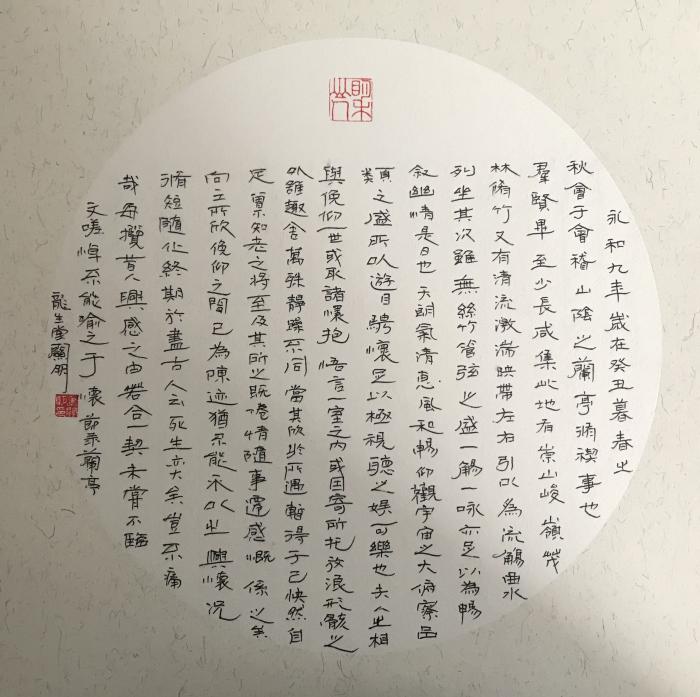 永和九年歲在癸丑暮春之
秋會于會稽山陰之蘭亭脩禊事也
羣賢畢至少長咸集此地有崇山峻嶺茂
林脩竹又有清流激湍映帶左右引以為流觴曲水
列坐其次雖無絲竹管弦之盛一觴一詠亦足以為暢
敘幽情是日也天朗氣清惠風和暢仰觀宇宙之大俯察品
類之盛所以遊目騁懷足以極視聽之娛可樂也夫人之相
與俛仰一世或取諸懷抱悟言一室之內或因寄所托放浪形骸之
外雖趣舍萬殊靜躁不同當其欣於所遇暫得于己快然自
足曾不知老之將至及其所之既惓情隨事遷感慨係之矣
向之所欣俛仰之間已為陳迹猶不能不以之興懷況
脩短隨化終期於盡古人云死生亦大矣豈不痛
哉每攬昔人興感之由若合一契未嘗不臨
文嗟悼不能喻之于懷節录蘭亭
龍生堂